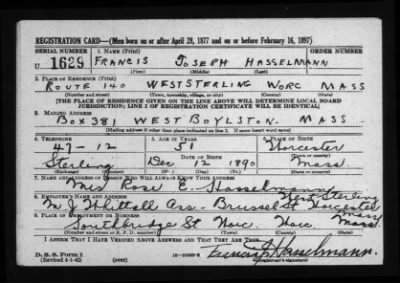 REGISTRATION CARD—(Men born on or after April 28, 1877 and on or before February 16, 1897)
SERIAL NUMBER 1. NAME (Print) ORDER NUMBER
U 1629 FRANCIS JOSEPH HASSELMANN
(First) (Middle) (Last)
2. PLACE OF RESIDENCE (Print)
ROUTE 140 WEST STERLING WORC MASS
(Number and street) (Town, township, village, or city) (County) (State)
[THE PLACE OF RESIDENCE GIVEN ON THE LINE ABOVE WILL DETERMINE LOCAL BOARD
JURISDICTION; LINE 2 OF REGISTRATION CERTIFICATE WILL BE IDENTICAL]
3. MAILING ADDRESS
BOX 381 WEST BOYLSTON. MASS
[Mailing address if other than place indicated on line 2. If same insert word same]
4. TELEPHONE 5. AGE IN YEARS 6. PLACE OF BIRTH
47-12 51 Worcester
DATE OF BIRTH
Sterling Dec 12 1890 Mass.
7. NAME AND ADDRESS OF PERSON WHO WILL ALWAYS KNOW YOUR ADDRESS
Mrs Rose E. Hasselmann West Sterling Mass
8. EMPLOYER'S NAME AND ADDRESS
M. J. Whittall Ass - Brussel St Worcester Mass.
9. PLACE OF EMPLOYMENT OR BUSINESS
Southbridge St Worc. Worc. Mass.
(Number and street or R. F. D. number) (Town) (County) (State)
I AFFIRM THAT I HAVE VERIFIED ABOVE ANSWERS AND THAT THEY ARE TRUE.
D. S. S. Form 1
(Revised 4-1-42) (over) Francis J Hasselmann.
(Registrant's signature)